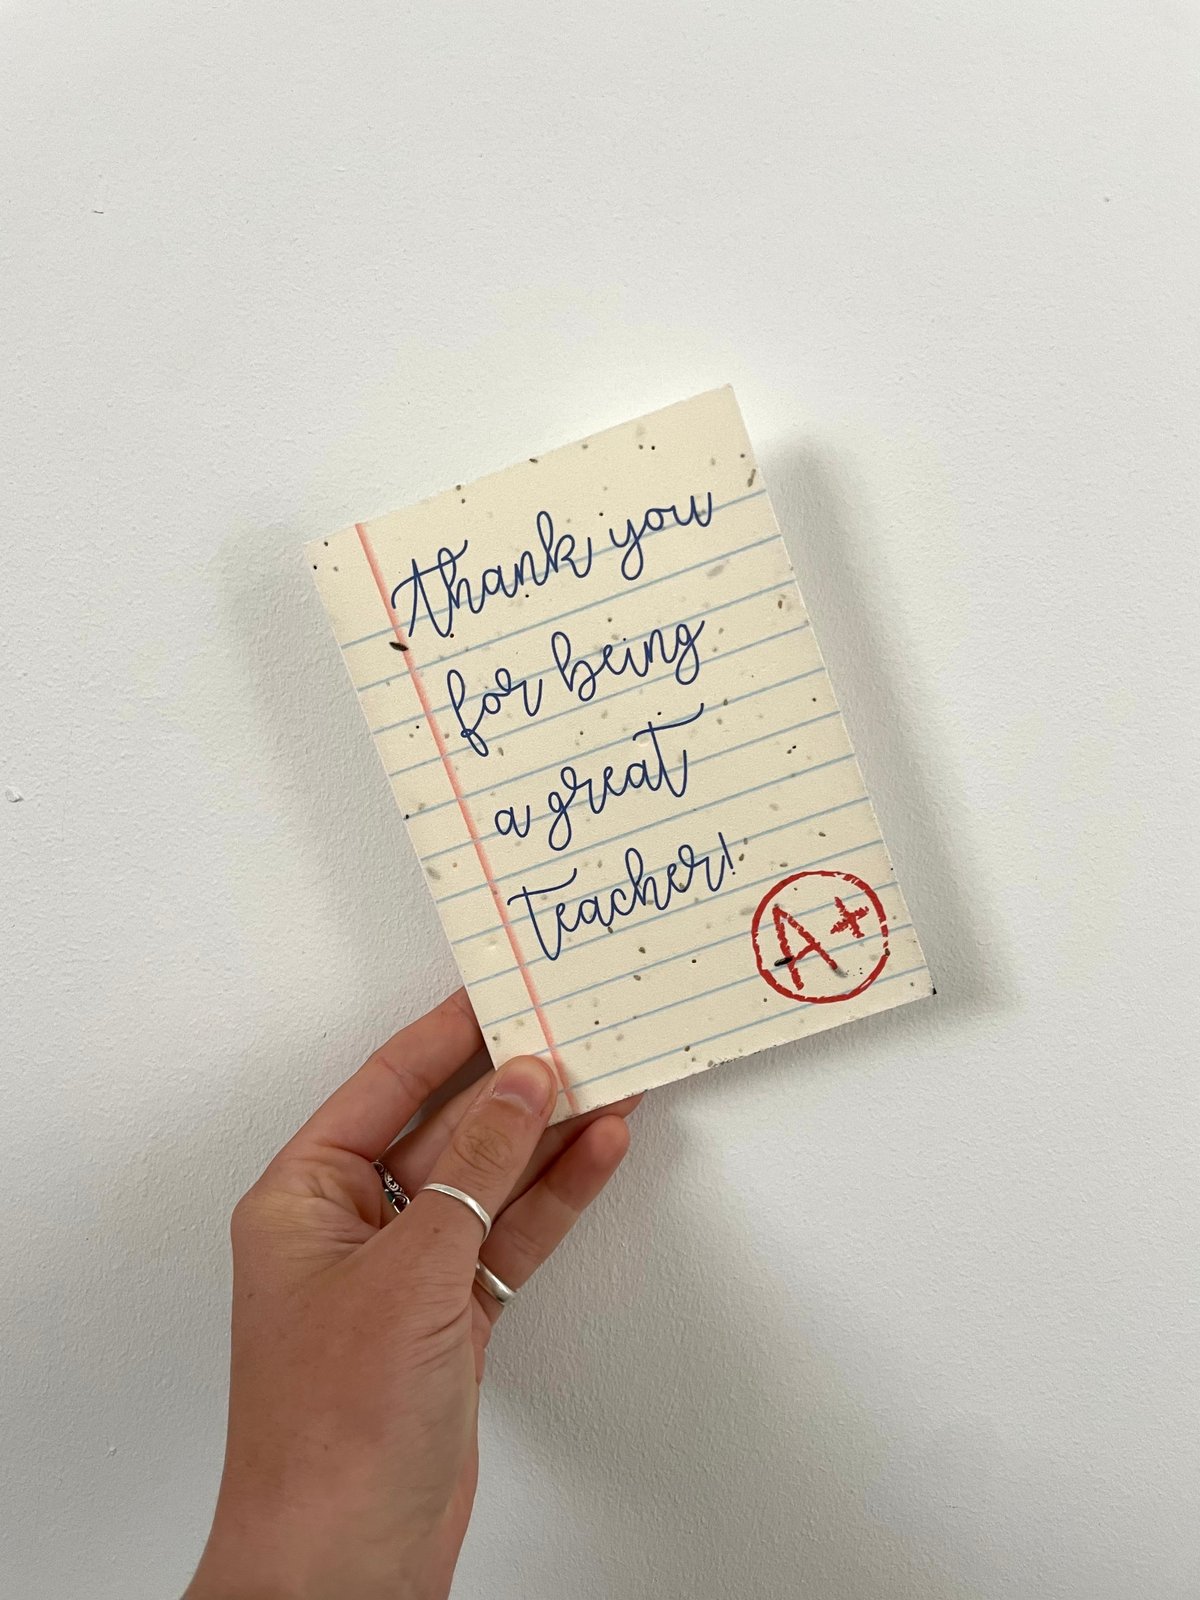 thank you
for being
a great
teacher!
A+